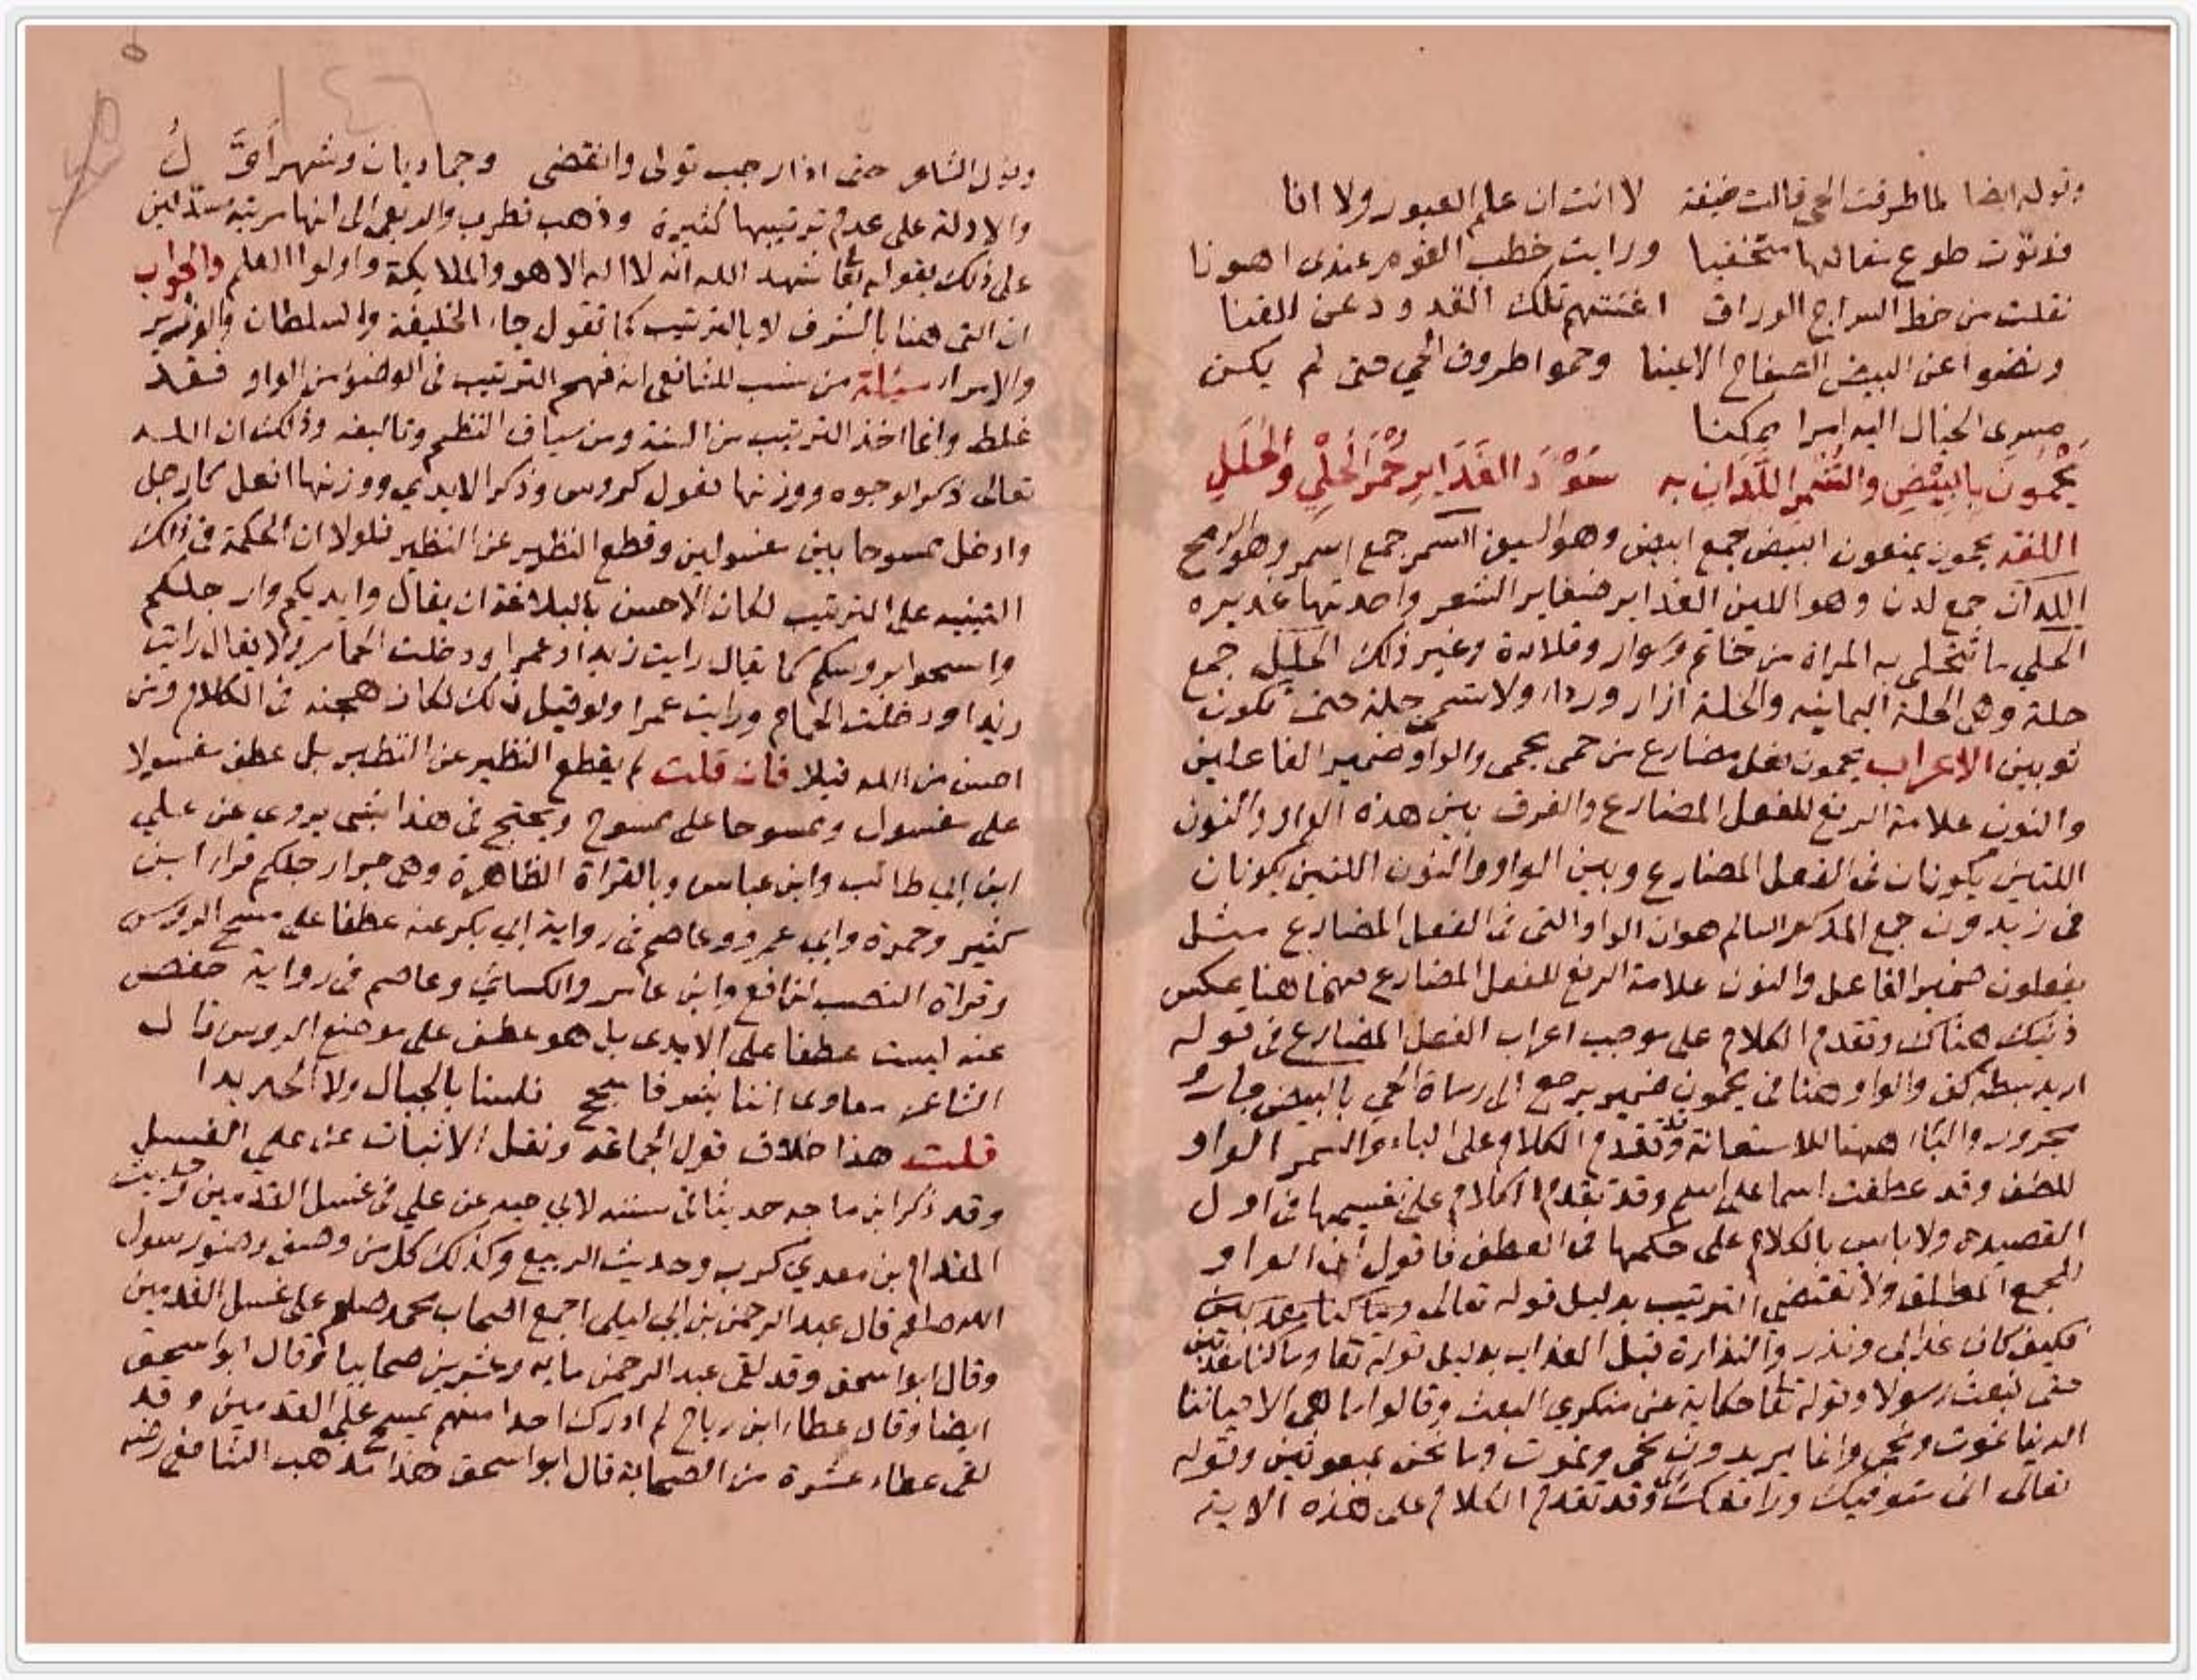 وقوله ايضا لما طرقت الحي قالت خيفة لا انت ان علم الغيور ولا انا
فدنوت طوع مقالها متخفيا ورايت خطب القوم عندي اهونا
نقلت من خط السراج الوراق اغنتهم تلك القدود عن القنا
ونضوا عن البيض الصفاح الاعينا وحموا طروق الحي حتى لم يكن
مسرى الخيال اليه امرا ممكنا
يَحْمُونَ بِالبِيْضِ والسُّمْرِ اللَّدَانِ بِه سُوْدَ الغَدَايِرِ حُمْرَ الحَلْيِ والحُلَلِ
اللغة يحمون يمنعون البيض جمع ابيض وهو السيف السمر جمع اسمر وهو الرمح
اللدان جمع لدن وهو اللين الغداير ضفاير الشعر واحدتها غديره
الحلي ما تتحلى به المراة من خاتم وسوار وقلادة وغير ذلك الحلل جمع
حلة وهي الحلة اليمانيه والحلة ازار وردا ولا تسمى حلة حتى تكون
ثوبين الاعراب يحمون فعل مضارع من حمى يحمي والواو ضمير الفاعلين
والنون علامة الرفع للفعل المضارع والفرق بين هذه الواو والنون
اللتين يكونان في الفعل المضارع وبين الواو والنون اللتين يكونان
في زيدون جمع المذكر السالم هو ان الواو التي في الفعل المضارع مثل
يفعلون ضمير الفاعل والنون علامة الرفع للفعل المضارع فهما هنا بعكس
ذينك هناك وتقدم الكلام على موجب اعراب الفعل المضارع في قوله
اريد بسطة كف والواو هنا في يحمون ضمير يرجع الى رماة الحي بالبيض جار و
مجرور والباا ههنا للاستعانة وقد تقدم الكلام على الباء والسمر الواو
للعطف وقد عطفت اسما على اسم وقد تقدم الكلام على تقسيمها في اول
القصيده ولا باس بالكلام على حكمها في العطف فاقول ان الواو
للجمع المطلق ولا تقتضي الترتيب بدليل قوله تعالى وما كنا معذبين
فكيف كان عذابي ونذر والنذارة قبل العذاب بدليل قوله تعا وما كنا معذبين
حتى نبعث رسولا وقوله تعا حكاية عن منكري البعث وقالوا ما هي الا حياتنا
الدنيا نموت ونحيى وانما يريدون نحيى ونموت وما نحن بمبعوثين وقوله
تعالى اني متوفيك ورافعك الي وقد تقدم الكلام على هذه الاية
وقول الشاعر حتى اذا رجب تولى وانقضى وجماديان وشهر
والادلة على عدم ترتيبها كثيرة وذهب قطرب والربعي الى انها مرتبة مستدلين
على ذلك بقوله تعا شهد الله انه لا اله الا هو والملايكة واولوا العلم والجواب
ان التي هنا بالشرف لا بالترتيب كما تقول جاء الخليفة والسلطان والوزير
والامراء مسئلة من نسب للشافعي انه فهم الترتيب في الوضوء من الواو فقد
غلط وانما اخذ الترتيب من السنة ومن سياق النظم وتاليفه وذلك ان الله
تعالى ذكر الوجوه ووزنها فعول كروس وذكر الايدي ووزنها افعل كارجل
وادخل ممسوحا بين مغسولين وقطع النظير عن النظير فلولا ان الحكمة في ذلك
التنبيه على الترتيب لكان الاحسن بالبلاغة ان يقال وايديكم وارجلكم
وامسحوا بروسكم كما يقال رايت زيدا وعمرا ودخلت الحمام ولا يقال رايت
زيدا ودخلت الحمام ورايت عمرا ولو قيل ذلك لكان هجنه في الكلام ومن
احسن من الله قيلا فان قلت لم يقطع النظير عن النظير بل عطف مغسولا
على مغسول وممسوحا على ممسوح ويحتج في هذا بشي يروى عن علي
ابن ابي طالب وابن عباس وبالقراة الظاهرة وهي جر ارجلكم قرا ابن
كثير وحمزة وابي عمرو وعاصم في رواية ابي بكر عنه عطفا على مسح الروس
وقراة النصب لنافع وابن عامر والكسائي وعاصم في رواية حفص
عنه ليست عطفا على الايدى بل هو عطف على موضع الروس قال
الشاعر معاوى اننا بشر فاسجح فلسنا بالجبال ولا الحديدا
قلت هذا خلاف قول الجماعة ونقل الاثبات عن علي الغسل
وقد ذكر ابن ماجه حديثا في سننه لابي حيه عن علي في غسل القدمين وحديث
المقدام بن معدي كرب وحديث الربيع وكذلك كل من وصف وضوء رسول
الله صلعم قال عبد الرحمن بن ابي ليلى اجمع اصحاب محمد صلعم على غسل القدمين
وقال ابو اسحق وقد لقي عبد الرحمن مايه وعشرين صحابيا وقال ابو اسحق
ايضا وقال عطاء ابن رباح لم ادرك احدا منهم يمسح على القدمين وقد
لقي عطاء عشرة من الصحابة قال ابو اسحق هذا مذهب الشافعي رضه